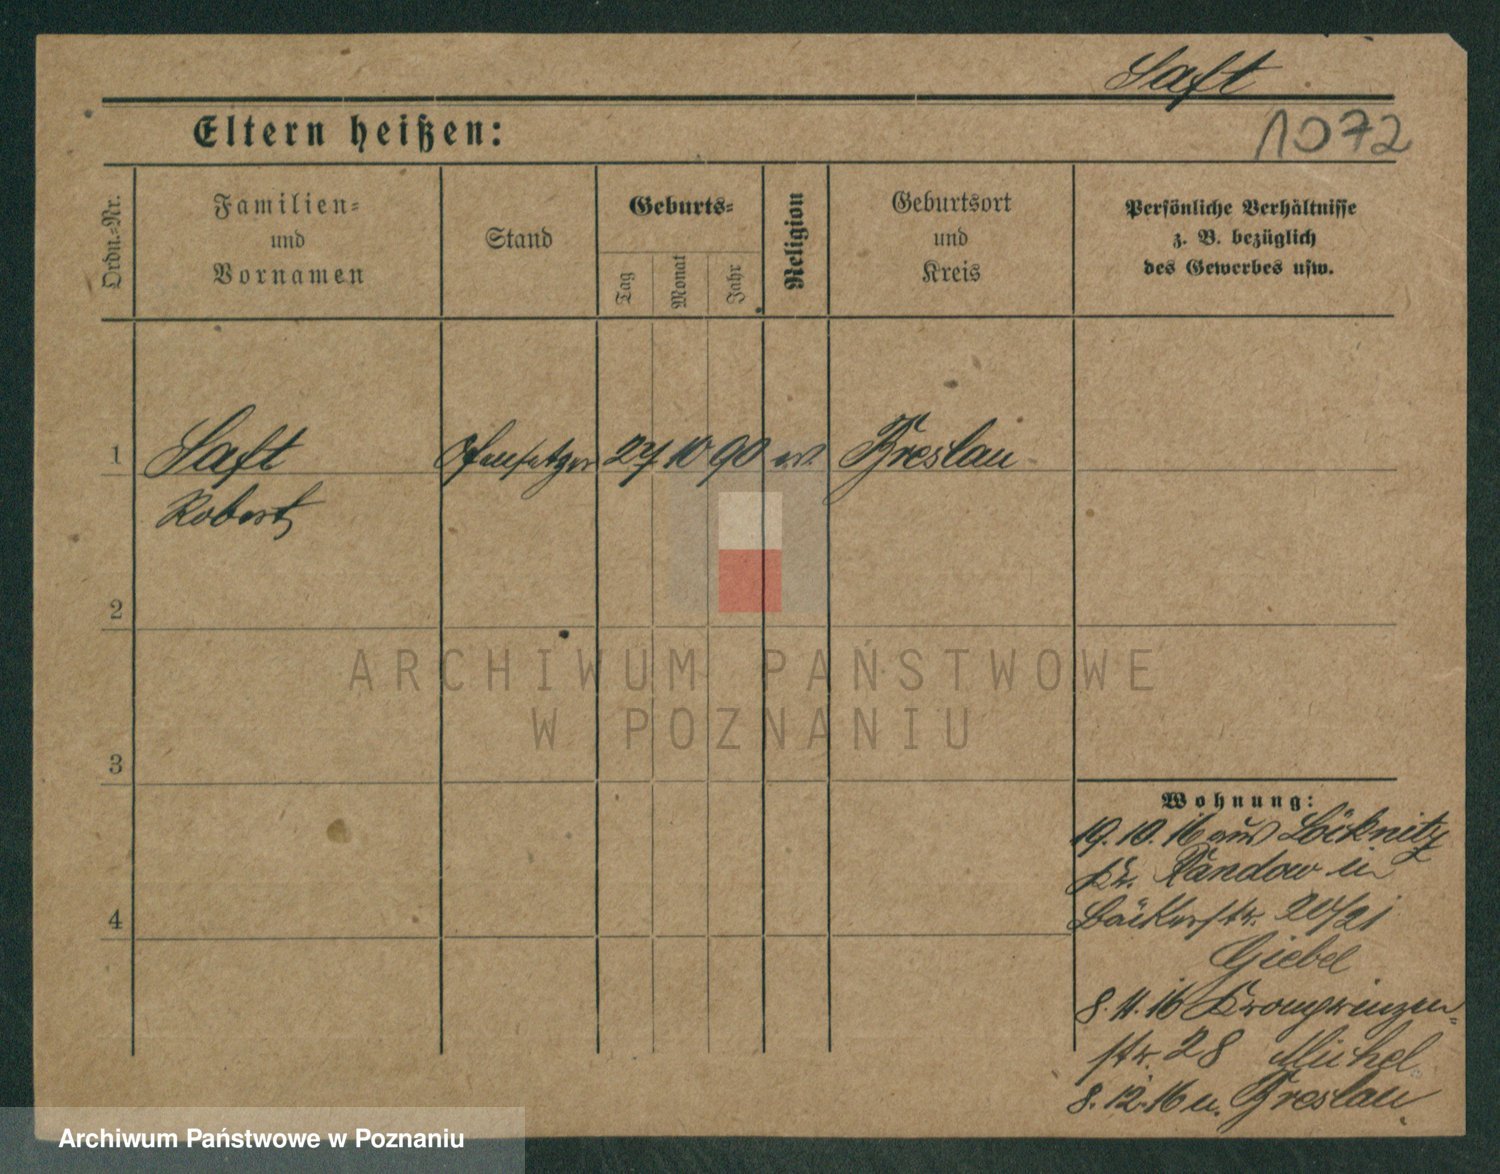 Saft
Eltern heißen:
1072
Ordn.-Nr.
Familien-
und
Vornamen
Stand
Geburts-
Tag
Monat
Jahr
Religion
Geburtsort
und
Kreis
Persönliche Verhältnisse
z. B. bezüglich
des Gewerbes usw.
1
Saft
Ofensetzer
27
10
90
ev.
Breslau
Robert
2
3
4
ARCHIWUM PAŃSTWOWE
W POZNANIU
Wohnung:
19.10.16 aus Löcknitz
Kr. Randow in
Bäckerstr. 20/21
Giebel
8.11.16 Kronprinzen-
str. 28 Michel
8.12.16 n. Breslau
Archiwum Państwowe w Poznaniu